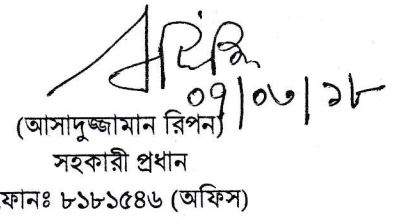 ০৭/০৬/১৮
(আসাদুজ্জামান রিপন)
সহকারী প্রধান
ফোনঃ ৮১৮১৫৪৬ (অফিস)